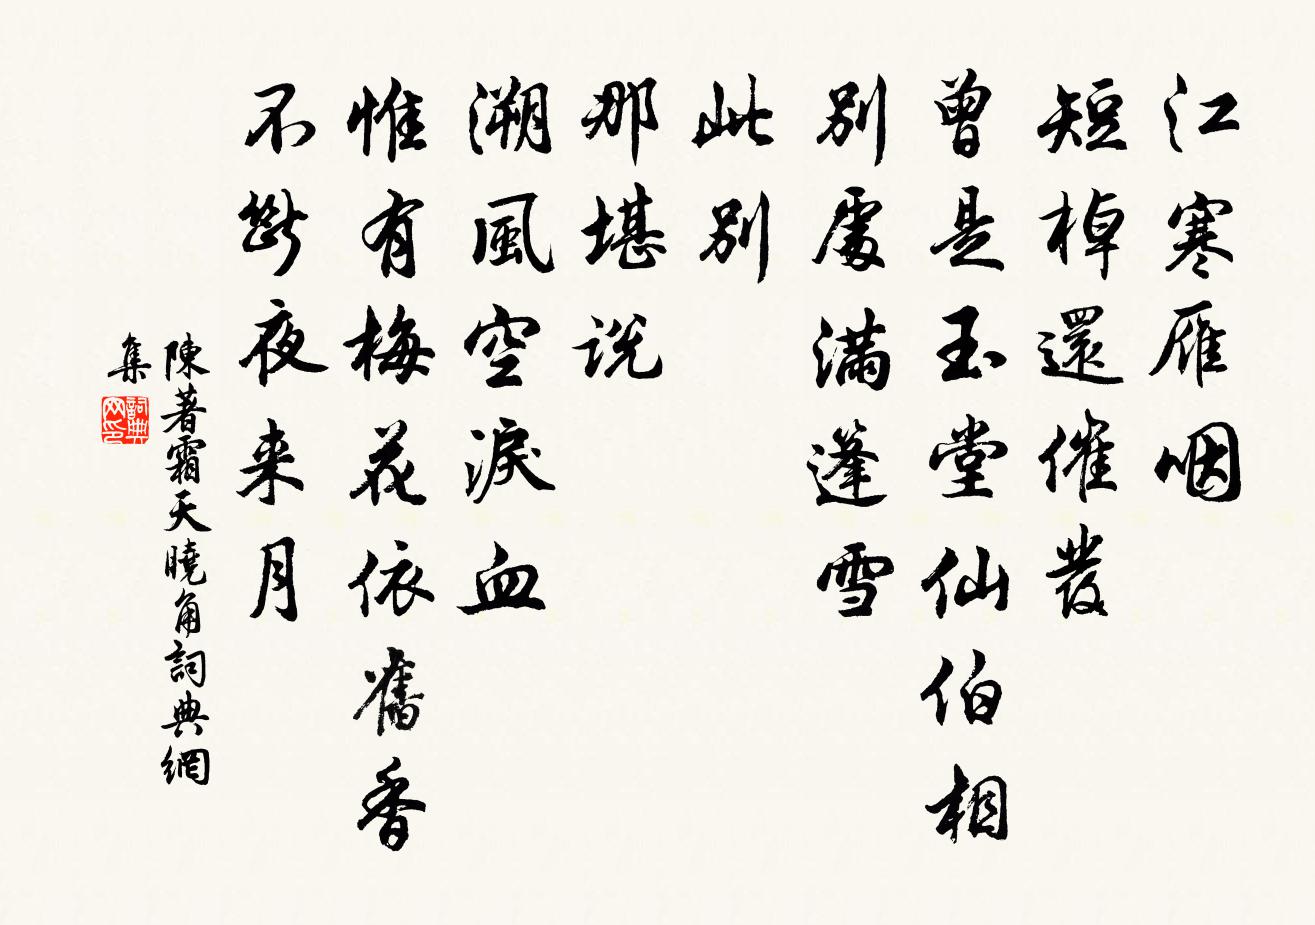 江寒雁咽
短棹還催發
曾是玉堂仙伯相
別處滿蓬雪
此別
那堪說
溯風空淚血
惟有梅花依舊香
不斷夜来月
陳著霜天曉角詞典網
集
詞典网印